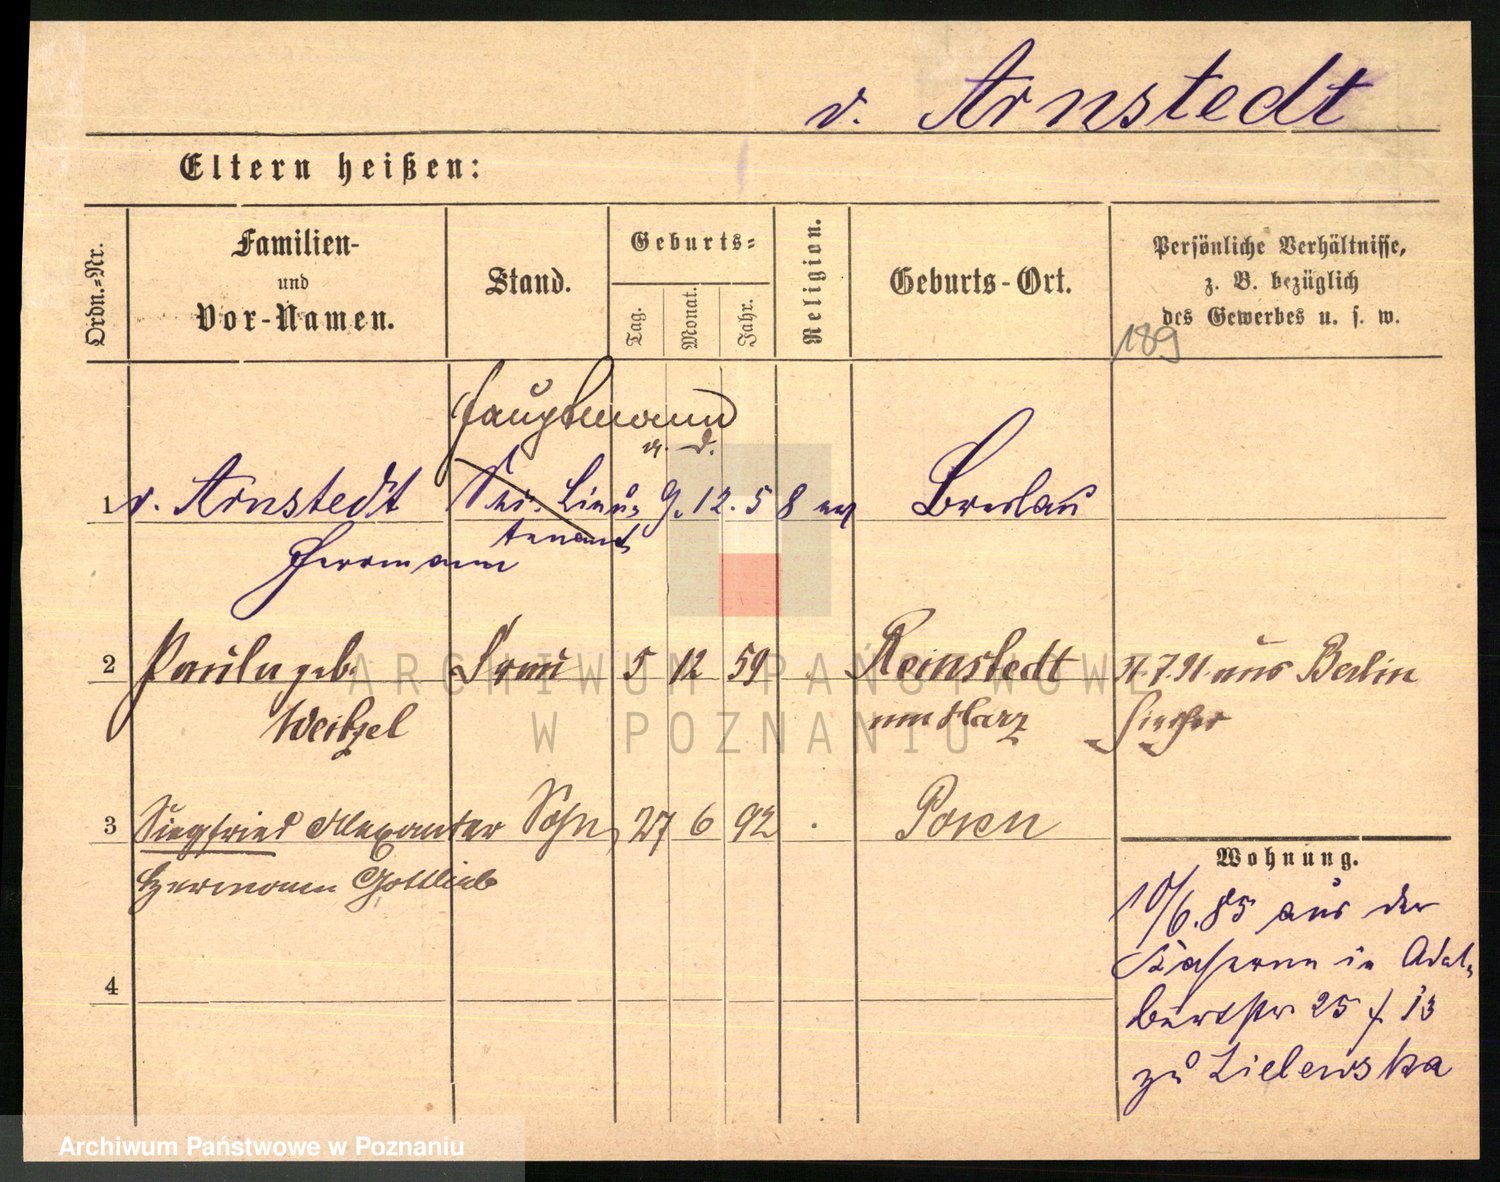 v. Arnstedt
Eltern heißen:
Ordn.=Nr.
Familien-
und
Vor-Namen.
Stand.
Geburts=
Tag.
Monat.
Jahr.
Religion.
Geburts-Ort.
Persönliche Verhältnisse,
z. B. bezüglich
des Gewerbes u. s. w.
189
Hauptmann
a. D.
1 v. Arnstedt Sec. Lieu= 9. 12. 58 ev Breslau
tenant
Herrmann
2 Paula geb. Frau 5 12 59 Reinstedt 7.91 aus Berlin
Weitzel am Harz hierher
3 Siegfried Alexander Sohn 27 6 92 Posen
Hermann Gottlieb
4
Wohnung.
10/6.85 aus der
Kaserne in Adal=
bertstr 25 f 13
zu Zielewska
ARCHIWUM PAŃSTWOWE
W POZNANIU
Archiwum Państwowe w Poznaniu